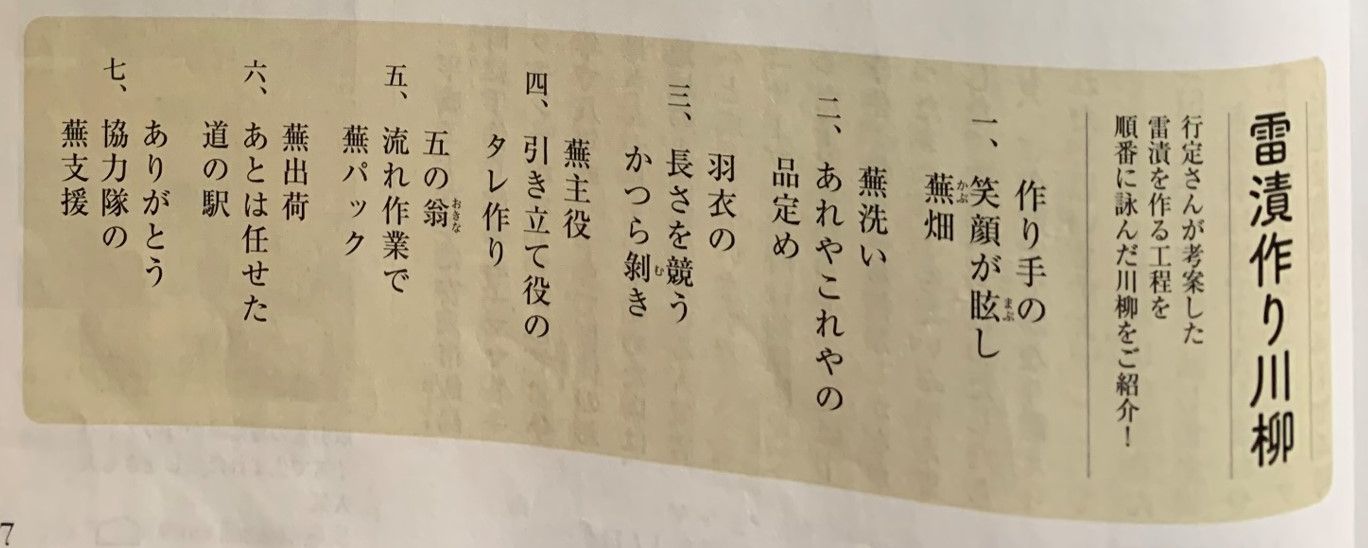 雷漬作り川柳
行定さんが考案した
雷漬を作る工程を
順番に詠んだ川柳をご紹介！
作り手の
一、笑顔が眩し
まぶ
蕪畑
かぶ
蕪洗い
二、あれやこれやの
品定め
羽衣の
三、長さを競う
かつら剝き
む
蕪主役
四、引き立て役の
タレ作り
五の翁
おきな
五、流れ作業で
蕪パック
蕪出荷
六、あとは任せた
道の駅
ありがとう
七、協力隊の
蕪支援
7